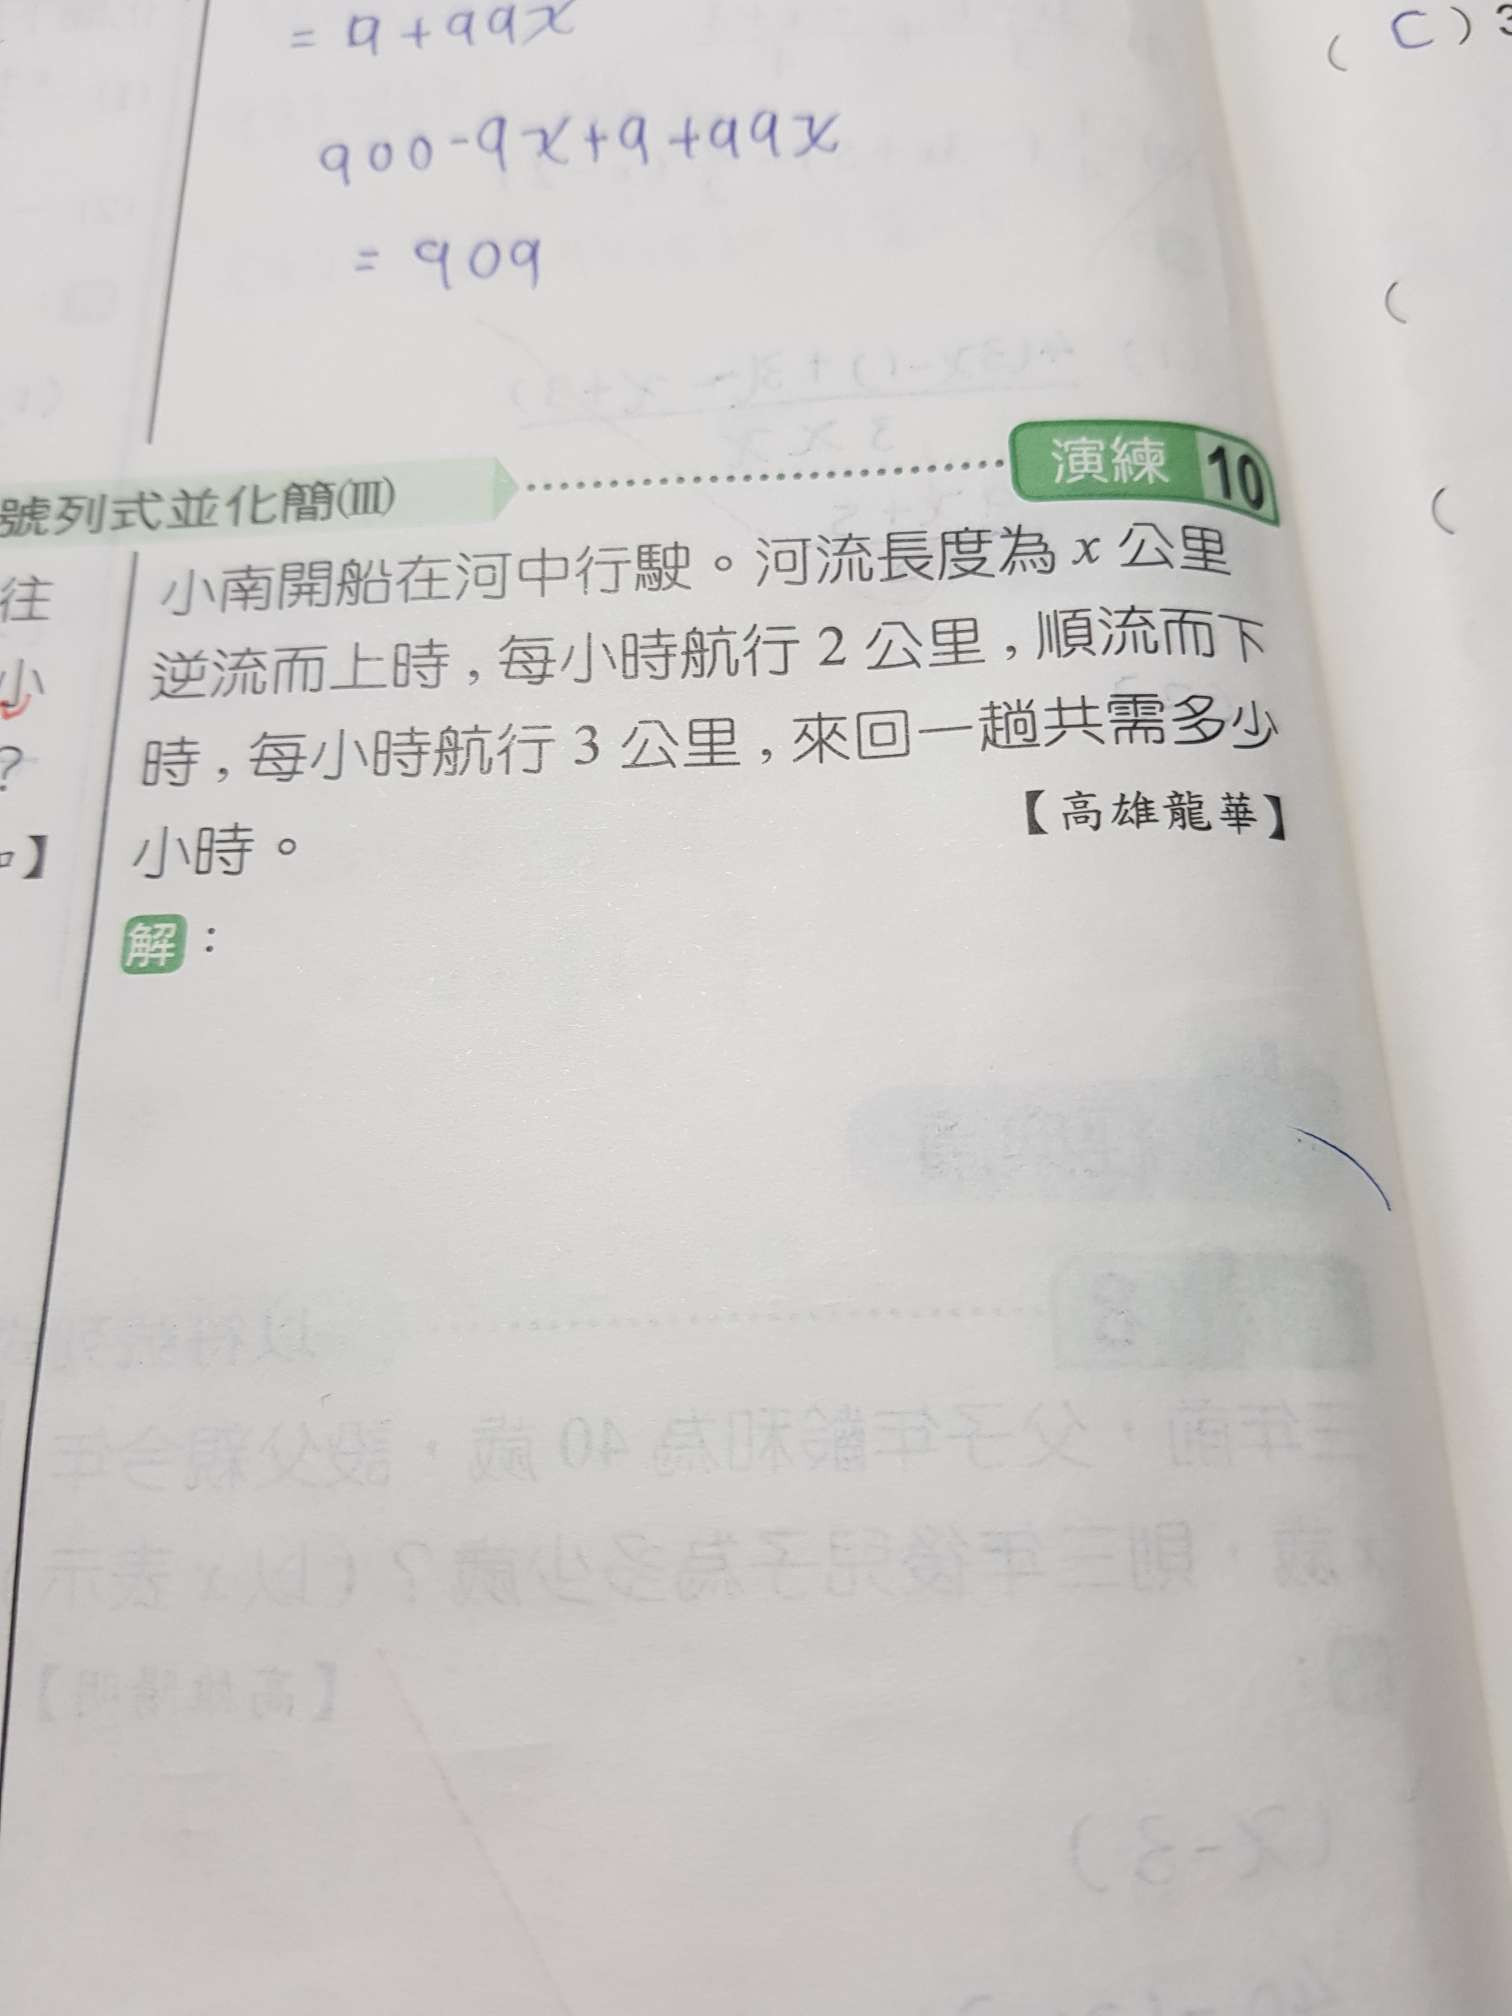 = 9+99x
900-9x+9+99x
= 909
( C ) 3
(
(
演練 10
號列式並化簡(III)
往
小
?
】
小南開船在河中行駛。河流長度為 x 公里
逆流而上時,每小時航行 2 公里,順流而下
時,每小時航行 3 公里,來回一趟共需多少
小時。
【高雄龍華】
解: